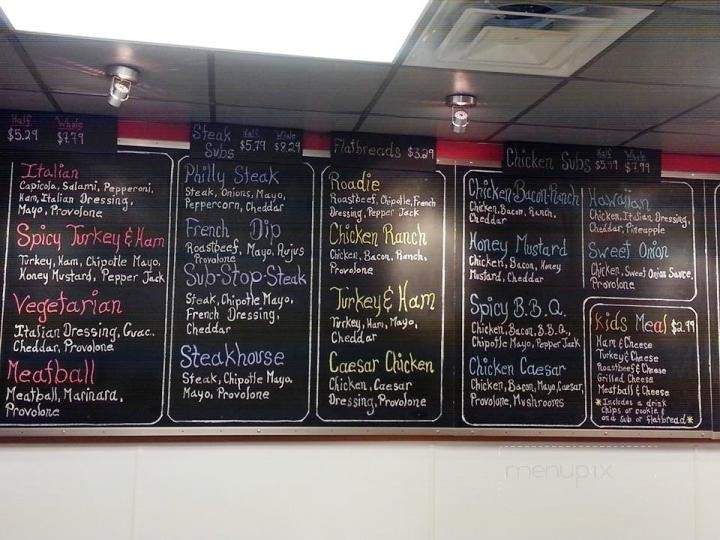 Half Whole
$5.29 $7.79
Italian
Capicola, Salami, Pepperoni,
Ham, Italian Dressing,
Mayo, Provolone
Spicy Turkey & Ham
Turkey, Ham, Chipotle Mayo,
Honey Mustard, Pepper Jack
Vegetarian
Italian Dressing, Guac.
Cheddar, Provolone
Meatball
Meatball, Marinara,
Provolone
Steak Subs
Half Whole
$5.79 $8.29
Philly Steak
Steak, Onions, Mayo,
Peppercorn, Cheddar
French Dip
Roastbeef, Mayo, Aujus
Provolone
Sub-Stop-Steak
Steak, Chipotle Mayo,
French Dressing,
Cheddar
Steakhouse
Steak, Chipotle Mayo,
Mayo, Provolone
Flatbreads $3.29
Roadie
Roastbeef, Chipotle, French
Dressing, Pepper Jack
Chicken Ranch
Chicken, Bacon, Ranch,
Provolone
Turkey & Ham
Turkey, Ham, Mayo,
Cheddar
Caesar Chicken
Chicken, Caesar
Dressing, Provolone
Chicken Subs
Half Whole
$5.79 $7.99
Chicken Bacon Ranch
Chicken, Bacon, Ranch,
Cheddar
Honey Mustard
Chicken, Bacon, Honey
Mustard, Cheddar
Spicy B.B.Q.
Chicken, Bacon, B.B.Q.,
Chipotle Mayo, Pepper Jack
Chicken Caesar
Chicken, Bacon, Mayo, Caesar,
Provolone, Mushrooms
Hawaiian
Chicken, Italian Dressing,
Cheddar, Pineapple
Sweet Onion
Chicken, Sweet Onion Sauce,
Provolone
Kids Meal $2.99
Ham & Cheese
Turkey & Cheese
Roastbeef & Cheese
Grilled Cheese
Meatball & Cheese
*Includes a drink
chips or cookie &
on a sub or flatbread*
menupix